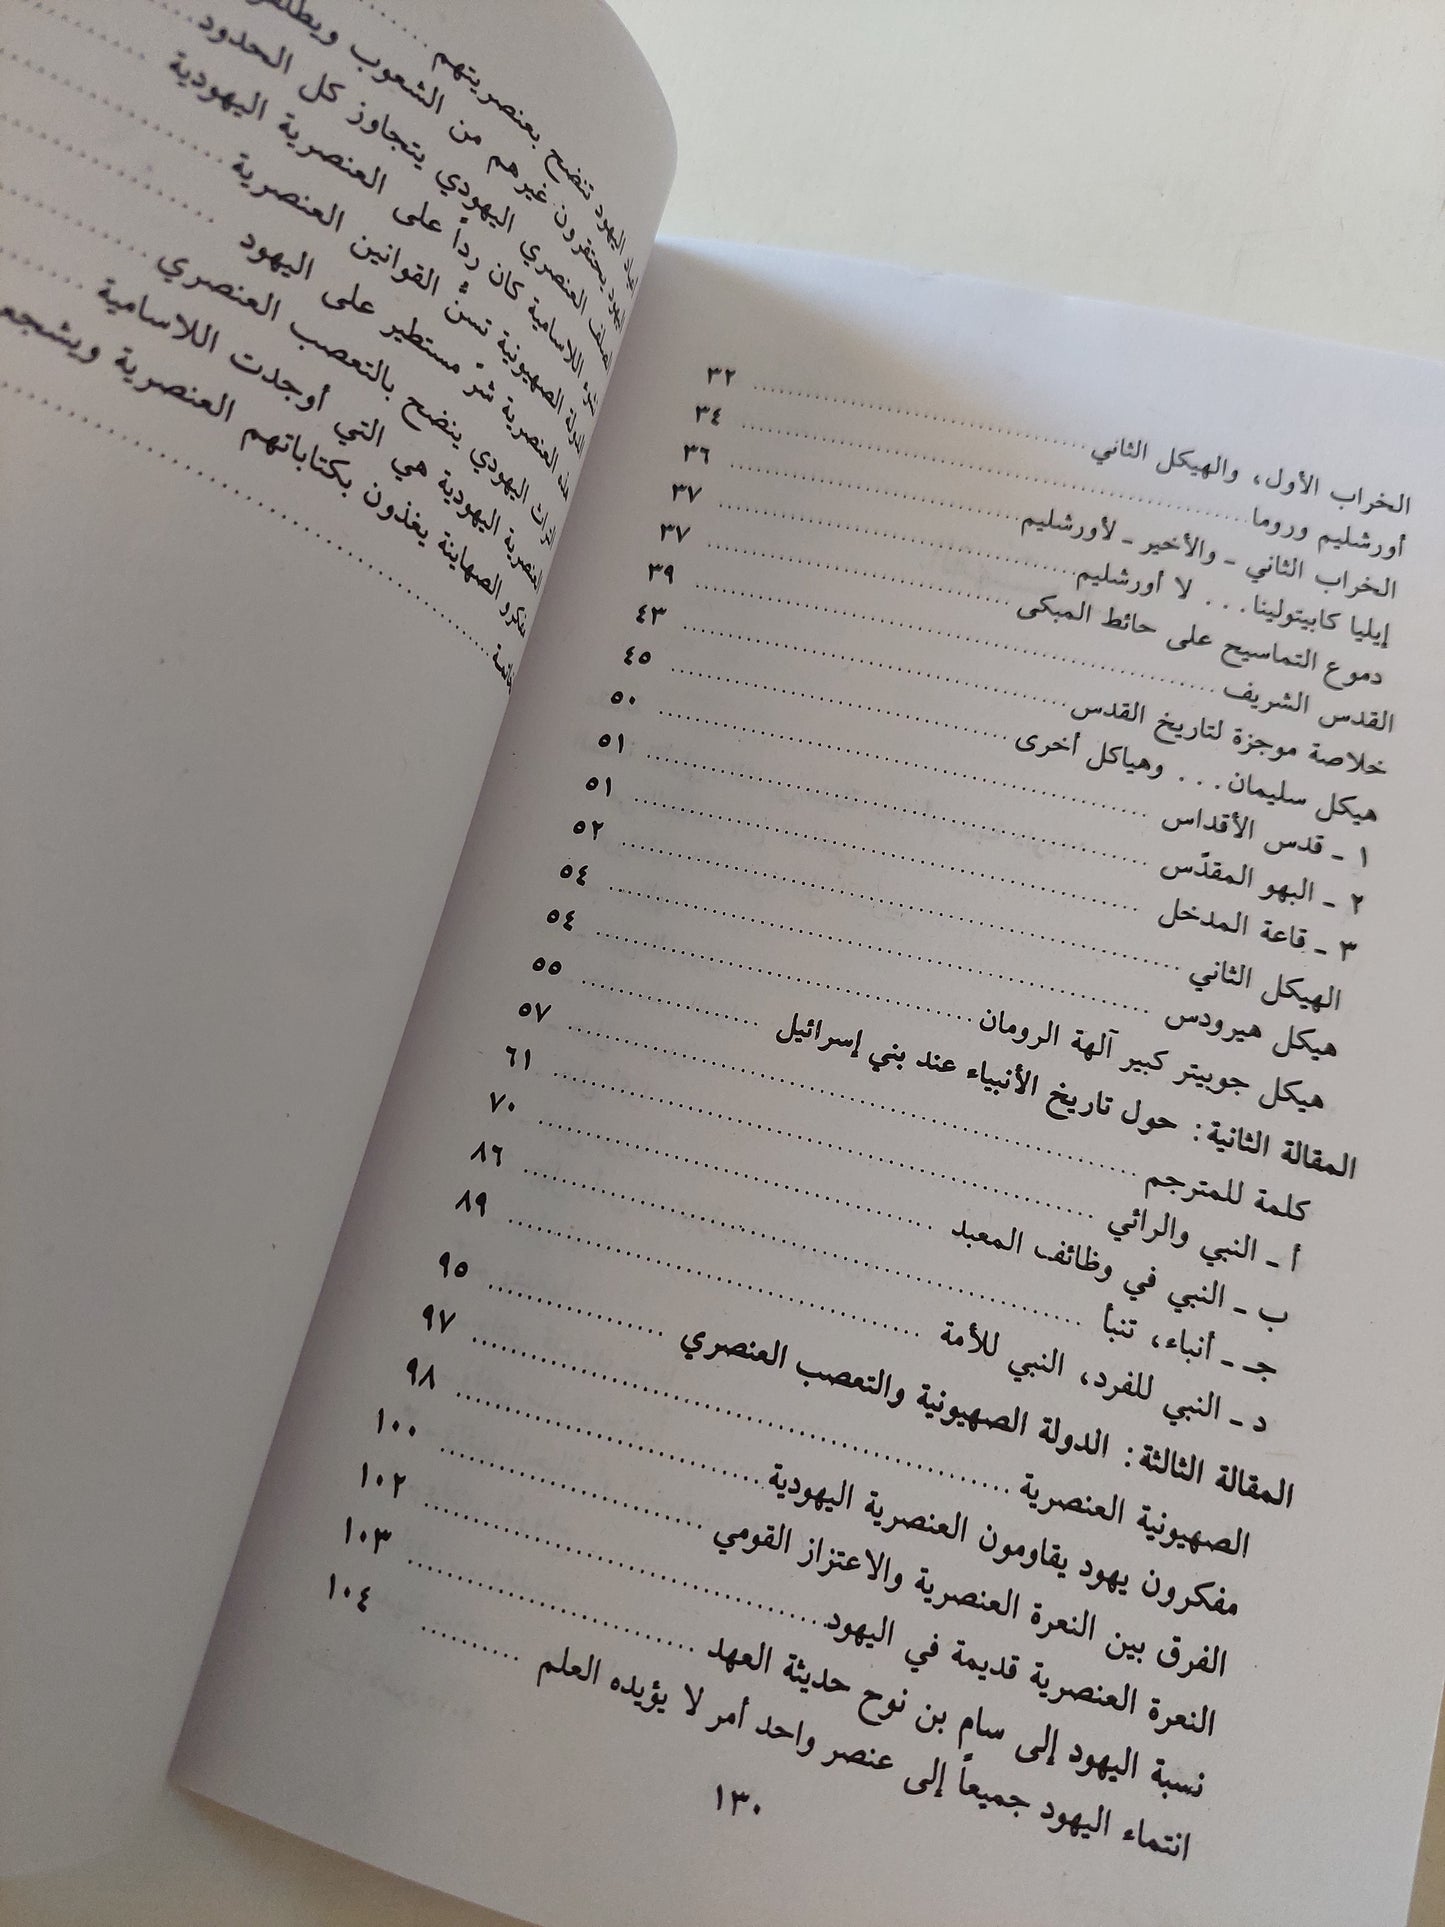 الخراب الأول، والهيكل الثاني ........ ٣٢
أورشليم وروما ........ ٣٤
الخراب الثاني ـ والأخير ـ لأورشليم ........ ٣٦
إيليا كابيتولينا... لا أورشليم ........ ٣٧
دموع التماسيح على حائط المبكى ........ ٣٧
القدس الشريف ........ ٣٩
خلاصة موجزة لتاريخ القدس ........ ٤٣
هيكل سليمان... وهياكل أخرى ........ ٤٥
١ ـ قدس الأقداس ........ ٥٠
٢ ـ البهو المقدّس ........ ٥١
٣ ـ قاعة المدخل ........ ٥١
الهيكل الثاني ........ ٥٢
هيكل هيرودس ........ ٥٤
هيكل جوبيتر كبير آلهة الرومان ........ ٥٤
المقالة الثانية: حول تاريخ الأنبياء عند بني إسرائيل ........ ٥٥
كلمة للمترجم ........ ٥٧
أ ـ النبي والرائي ........ ٦١
ب ـ النبي في وظائف المعبد ........ ٧٠
جـ ـ أنباء، تنبأ ........ ٨٦
د ـ النبي للفرد، النبي للأمة ........ ٨٩
المقالة الثالثة: الدولة الصهيونية والتعصب العنصري ........ ٩٥
الصهيونية العنصرية ........ ٩٧
مفكرون يهود يقاومون العنصرية اليهودية ........ ٩٨
الفرق بين النعرة العنصرية والاعتزاز القومي ........ ١٠٠
النعرة العنصرية قديمة في اليهود ........ ١٠٢
نسبة اليهود إلى سام بن نوح حديثة العهد ........ ١٠٣
انتماء اليهود جميعاً إلى عنصر واحد أمر لا يؤيده العلم ........ ١٠٤
١٣٠
اليهود تنضح بعنصريتهم ........
اليهود يحتقرون غيرهم من الشعوب
العنصري اليهودي يتجاوز كل الحدود ........
اللاسامية كان رداً على العنصرية اليهودية ........
الصهيونية تسنُّ القوانين العنصرية ........
العنصرية شرّ مستطير على اليهود ........
اليهودي ينضح بالتعصب العنصري ........
العنصرية اليهودية هي التي أوجدت اللاسامية ........
الصهاينة يغذون بكتاباتهم العنصرية